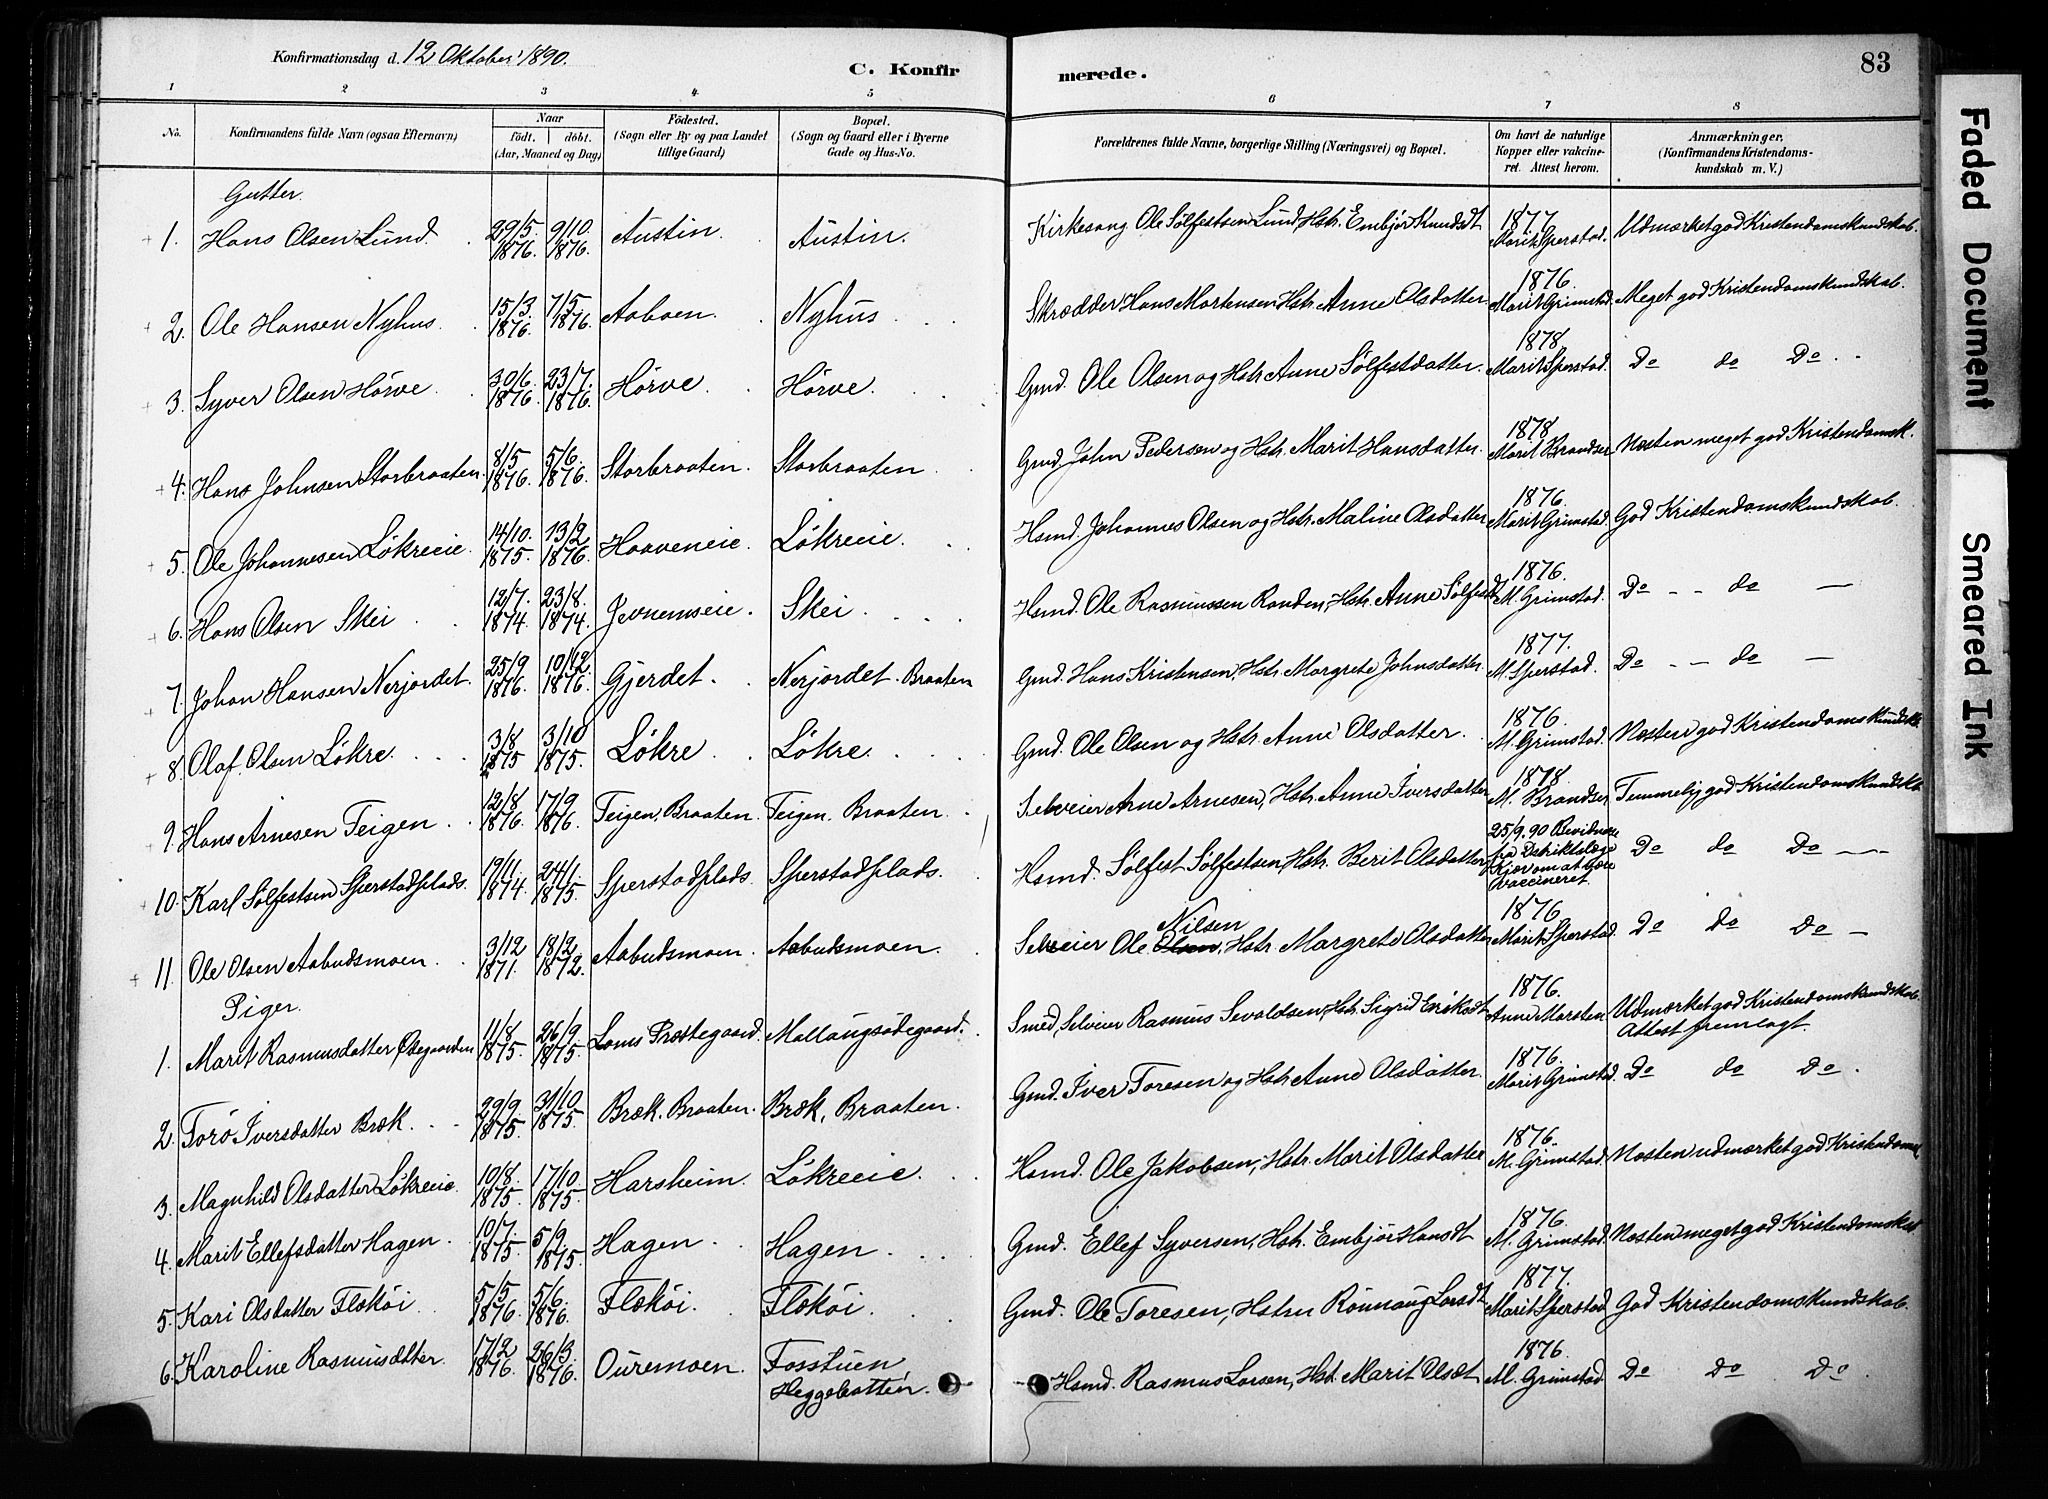 Konfirmationsdag d. 12 Oktober 1890.
C. Konfirmerede.
83
1 2 3 4 5 6 7 8
No.
Konfirmandens fulde Navn (ogsaa Efternavn)
Naar
födt. döbt.
(Aar, Maaned og Dag)
Födested.
(Sogn eller By og paa Landet
tillige Gaard)
Bopæl.
(Sogn og Gaard eller i Byerne
Gade og Hus-No.
Forældrenes fulde Navne, borgerlige Stilling (Næringsvei) og Bopæl.
Om havt de naturlige
Kopper eller vakcine-
ret. Attest herom.
Anmærkninger.
(Konfirmandens Kristendoms-
kundskab m. V.)
Gutter.
1. Hans Olsen Lund. 29/5 1876. 9/10 1876. Austin. Austin. Kirkesang. Ole Sølfestsen Lund, Hstr. Embjør Knudsdt 1877 Marit Sperstad. Udmærket god Kristendomskundskab.
2. Ole Hansen Nyhus. 15/3 1876. 7/5 1876. Aaboen. Nyhus Skrædder Hans Mortensen, Hstr. Anne Olsdatter 1876. Marit Grimstad. Meget god Kristendomskundskab.
3. Syver Olsen Hörve. 30/6. 1876. 23/7. 1876. Hörve. Hörve. Gmd. Ole Olsen og Hstr. Anne Sølfestdatter. 1878. Marit Sperstad. Do do Do
4. Hans Johnsen Storbraaten. 8/5 1876. 5/6. 1876. Storbraaten. Storbraaten Gmd. John Pedersen og Hstr. Marit Hansdatter. 1878 Marit Brandser Næsten meget god Kristendomsk.
5. Ole Johannesen Løkreeie. 14/10. 1875. 13/2 1876. Haaveneie. Løkreeie. Hsmd. Johannes Olsen og Hstr. Maline Olsdatter 1876. Marit Grimstad. God Kristendomskundskab.
6. Hans Olsen Skei 12/7. 1874. 23/8. 1874. Jevnemseie. Skei. Hsmd. Ole Rasmussen Randen, Hstr. Anne Sølfestd 1876. M. Grimstad. Do - - do -
7. Johan Hansen Nerjordet. 25/9 1876. 10/12 1876. Gjerdet. Nerjordet. Braaten Gmd. Hans Kristensen, Hstr. Margrete Johnsdatter. 1877. M. Sperstad. Do - - do -
8. Olaf. Olsen Løkre. 3/8 1875 3/10 1875. Løkre. Løkre. Gmd. Ole Olsen og Hstr. Anne Olsdatter. 1876. M. Grimstad. Næsten god Kristendomskundsk.
9. Hans Arnesen Teigen. 12/8 1876. 17/9 1876. Teigen, Braaten. Teigen. Braaten. Selveier Arne Arnesen, Hstr. Anne Iversdatter 1878. M. Brandser Temmelig god Kristendomskundsk.
10. Karl Sølfestsen Sperstadplads. 19/11. 1874. 24/1. 1875. Sperstadplads. Sperstadplads. Hsmd. Sølfest Sølfestsen, Hstr. Berit Olsdatter 25/9. 90 fra Distriktslæge Kjær om at være vaccineret. Do do Do
11. Ole Olsen Aabudsmoen. 3/12 1871. 18/2 1872. Aabudsmoen. Aabudsmoen. Selveier Ole Olsen, Nilsen Hstr. Margrete Olsdatter 1876 Marit Sperstad Do Do Do -
Piger.
1. Marit Rasmusdatter Ødegaarden 11/8 1875. 26/9 1875. Loms Præstegaard. Mollaugsødegaard. Smed, Selveier Rasmus Sevaldsen, Hstr. Sigrid Eriksdt 1876. Anne Marsten Udmærket god Kristendomskundskab. Attest fremlagt.
2. Torø Iversdatter Bræk. 29/9. 1875. 31/10 1875. Bræk. Braaten. Bræk, Braaten. Gmd. Iver Toresen og Hstr. Anne Olsdatter. 1876. Marit Grimstad. Do do Do.
3. Magnhild Olsdatter Løkreeie. 10/8. 1875. 17/10 1875. Harsheim. Løkreeie. Hsmd. Ole Jakobsen, Hstr. Marit Olsdatter 1876. M. Grimstad. Næsten udmærket god Kristendoms.
4. Marit Ellefsdatter Hagen. 10/7. 1875. 5/9. 1875. Hagen. Hagen. Gmd. Ellef Syversen, Hstr. Embjør Hansdt 1876. M. Grimstad. Næsten meget god Kristendomsk.
5. Kari Olsdatter Flækøi. 5/5 1876. 5/6. 1876. Flækøi. Flækøi. Gmd. Ole Toresen, Hstru Rönnaug Larsdt 1877. Marit Sperstad God Kristendomskundskab.
6. Karoline Rasmusdtter. 17/2 1876. 26/3. 1876. Ouremoen. Fosstuen Heggebotten. Hsmd. Rasmus Larsen, Hst. Marit Olsdt 1876. M. Grimstad Do Do Do
Faded Document
Smeared Ink